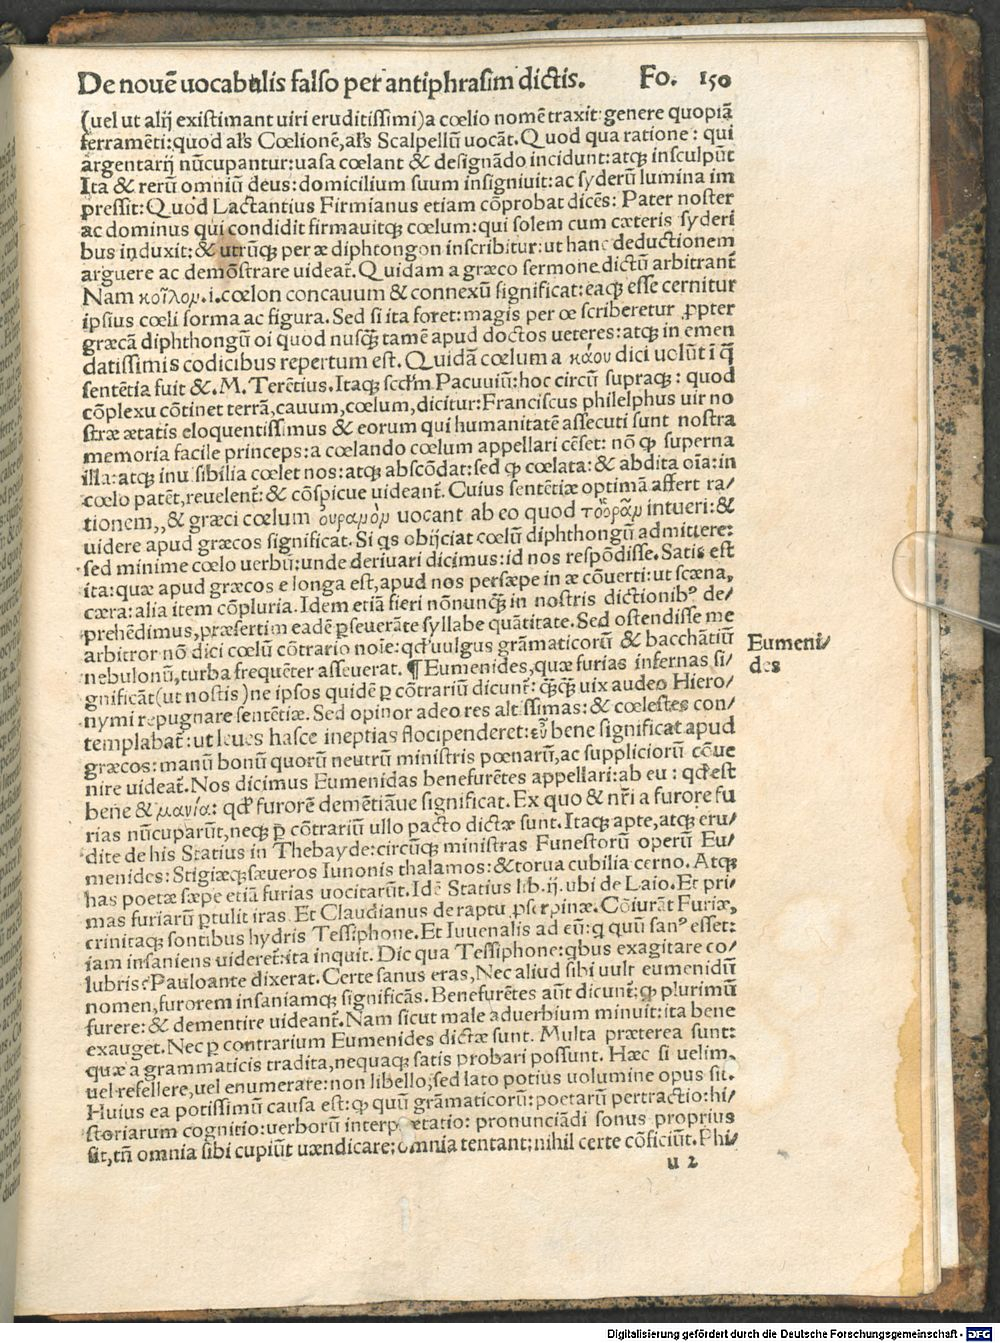 De nouē uocabulis falso per antiphrasim dictis. Fo. 150
(uel ut alij existimant uiri eruditissimi) a cœlio nomē traxit: genere quopiā
ferramēti: quod al's Cœlionē, al's Scalpellū uocāt. Quod qua ratione: qui
argentarij nūcupantur: uasa cœlant & designādo incidunt: atq; insculpūt
Ita & rerū omniū deus: domicilium suum insigniuit: ac syderū lumina im
pressit: Quod Lactantius Firmianus etiam cōprobat dicēs: Pater noster
ac dominus qui condidit firmauitq; cœlum: qui solem cum cæteris syderi
bus induxit: & utrūq; per æ diphtongon inscribitur: ut hanc deductionem
arguere ac demōstrare uideat̄. Quidam a græco sermone dictū arbitrant̄
Nam κοῖλον. i. cœlon concauum & connexū significat: eaq; esse cernitur
ipsius cœli forma ac figura. Sed si ita foret: magis per œ scriberetur ꝓpter
græcā diphthongū oi quod nusq̄ tamē apud doctos ueteres: atq; in emen
datissimis codicibus repertum est. Quidā cœlum a κάου dici uolūt ī q̄
sentētia fuit &. M. Terētius. Itaq; scd'm Pacuuiū: hoc circū supraq; : quod
cōplexu cōtinet terrā, cauum, cœlum, dicitur: Franciscus philelphus uir no
stræ ætatis eloquentissimus & eorum qui humanitatē assecuti sunt nostra
memoria facile princeps: a cœlando cœlum appellari cēset: nō ꝙ superna
illa: atq; inuisibilia cœlet nos: atq; abscōdat: sed ꝙ cœlata: & abdita oīa: in
cœlo patēt, reuelent̄: & cōspicue uideant̄. Cuius sentētiæ optimā affert ra/
tionem,, & græci cœlum ὀυρανὸν uocant ab eo quod τὸ ὁρᾶν intueri: &
uidere apud græcos significat. Si qs obijciat cœlū diphthongū admittere:
sed minime cœlo uerbū: unde deriuari dicimus: id nos respōdisse. Satis est
ita: quæ apud græcos e longa est, apud nos persæpe in æ cōuerti: ut scæna,
cæra: alia item cōpluria. Idem etiā fieri nōnunq̄ in nostris dictionibꝰ de/
prehēdimus, præsertim eadē ꝑseuerāte syllabe quātitate. Sed ostendisse me
arbitror nō dici cœlū cōtrario noīe: qd' uulgus grāmaticorū & bacchātiū
nebulonū, turba frequēter asseuerat. ¶ Eumenides, quæ furias infernas si/
gnificāt (ut nostis) ne ipsos quidē ꝑ cōtrariū dicunt̄: q̄q̄ uix audeo Hiero/
nymi repugnare sentētiæ. Sed opinor adeo res altissimas: & cœlestes con/
templabat̄: ut leues hasce ineptias flocipenderet: εὖ bene significat apud
græcos: manū bonū quorū neutrū ministris pœnarū, ac suppliciorū cōue
nire uideat̄. Nos dicimus Eumenidas benefurētes appellari: ab eu: qd' est
bene & μανία: qd' furorē demētiāue significat. Ex quo & nr̄i a furore fu
rias nūcuparūt, neq; ꝑ cōtrariū ullo pacto dictæ sunt. Itaq; apte, atq; eru/
dite de his Statius in Thebayde: circūq; ministras Funestorū operū Eu/
menides: Stigiæq; sæueros Iunonis thalamos: & torua cubilia cerno. Atq;
has poetæ sæpe etiā furias uocitarūt. Idē Statius lib. ij. ubi de Laio. Et pri/
mas furiarū ꝑtulit iras. Et Claudianus de raptu ꝓserpinæ. Cōiurāt Furiæ,
crinitaq; sontibus hydris Tessiphone. Et Iuuenalis ad eū: q quū sanꝰ esset:
iam insaniens uideret̄: ita inquit. Dic qua Tessiphone: qbus exagitare co/
lubris? Pauloante dixerat. Certe sanus eras, Nec aliud sibi uult eumenidū
nomen, furorem insaniamq; significās. Benefurētes aūt dicunt̄: ꝙ plurimū
furere: & dementire uideant̄. Nam sicut male aduerbium minuit: ita bene
exauget. Nec ꝑ contrarium Eumenides dictæ sunt. Multa præterea sunt:
quæ a grammaticis tradita, nequaq; satis probari possunt. Hæc si uelim,
uel refellere, uel enumerare: non libello, sed lato potius uolumine opus sit.
Huius ea potissimū causa est: ꝙ quū grāmaticorū: poetarū pertractio: hi/
storiarum cognitio: uerborū interpretatio: pronunciādi sonus proprius
sit, tn̄ omnia sibi cupiūt uændicare; omnia tentant; nihil certe cōficiūt. Phi/
u 2
Eumeni/
des
Digitalisierung gefördert durch die Deutsche Forschungsgemeinschaft - DFG